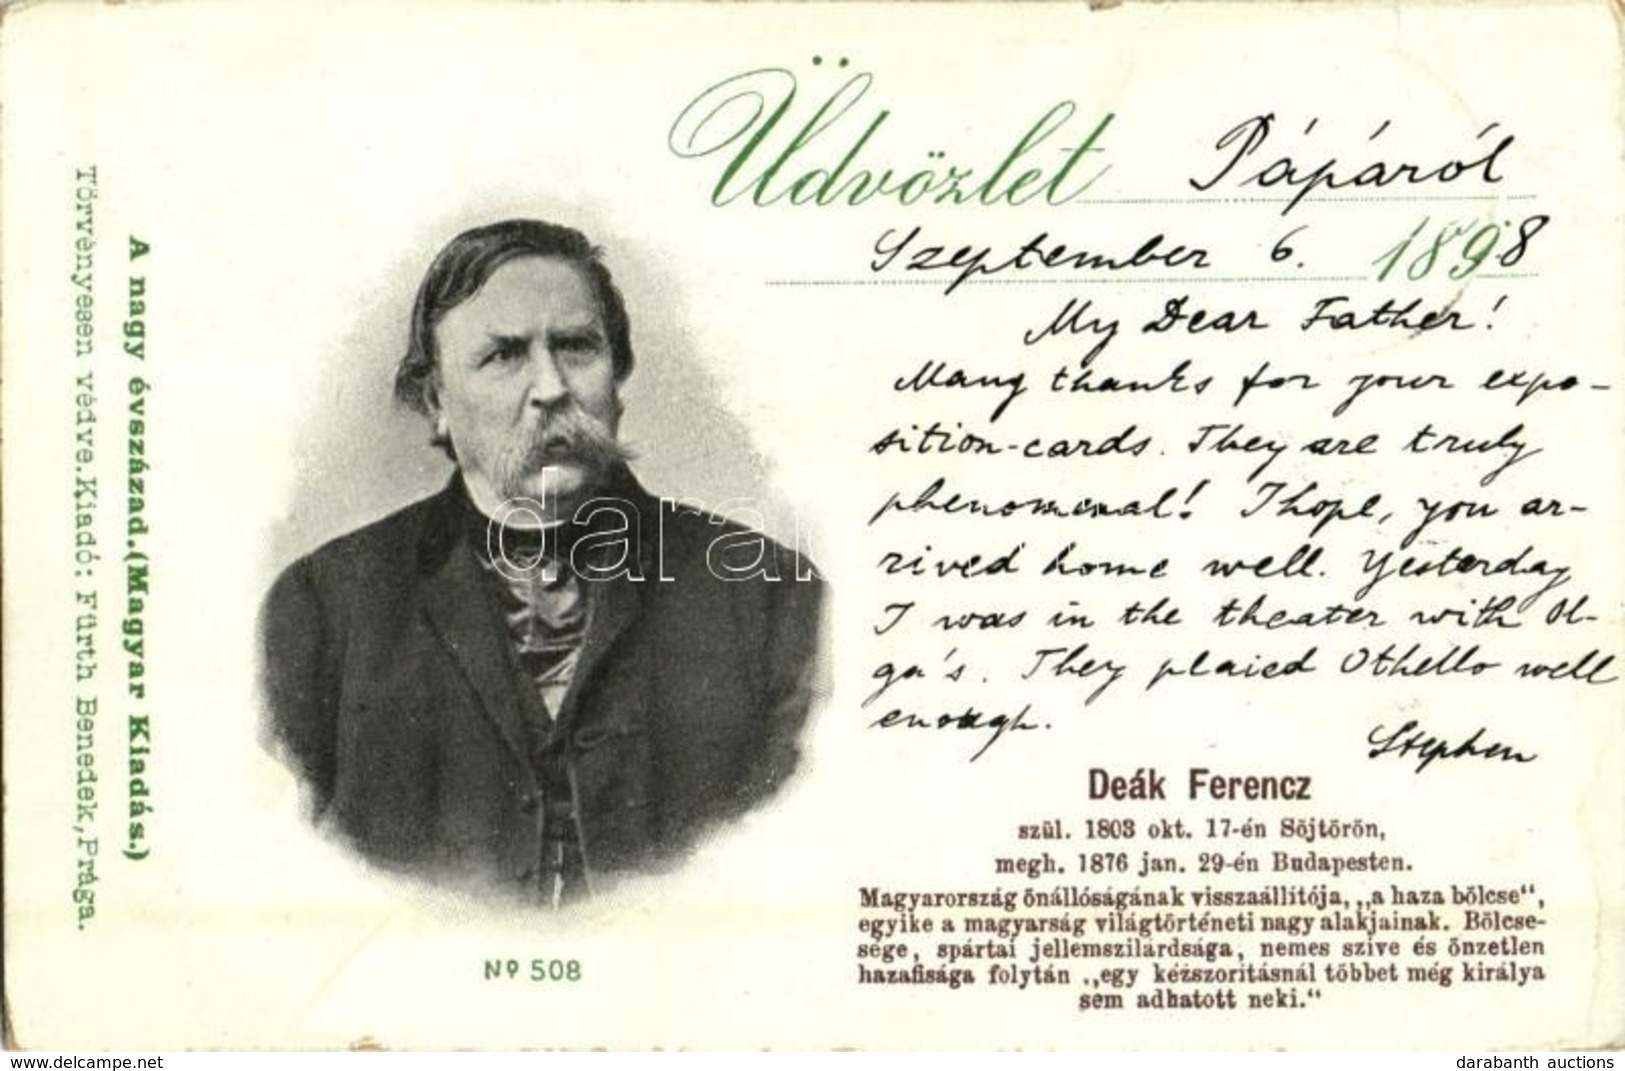 Üdvözlet Pápáról
Szeptember 6. 1898
My Dear Father!
Many thanks for your expo-
sition-cards. They are truly
phenomenal! I hope, you ar-
rived home well. Yesterday
I was in the theater with Ol-
ga's. They plaied Othello well
enough.
Stephen
Deák Ferencz
szül. 1803 okt. 17-én Söjtörön,
megh. 1876 jan. 29-én Budapesten.
Magyarország önállóságának visszaállítója, „a haza bölcse“,
egyike a magyarság világtörténeti nagy alakjainak. Bölcse-
sége, spártai jellemszilárdsága, nemes szive és önzetlen
hazafisága folytán „egy kézszoritásnál többet még királya
sem adhatott neki.“
A nagy évszázad.(Magyar Kiadás.)
Törvényesen védve.Kiadó: Fürth Benedek,Prága.
No 508
darab
www.delcampe.net
darabanth auctions